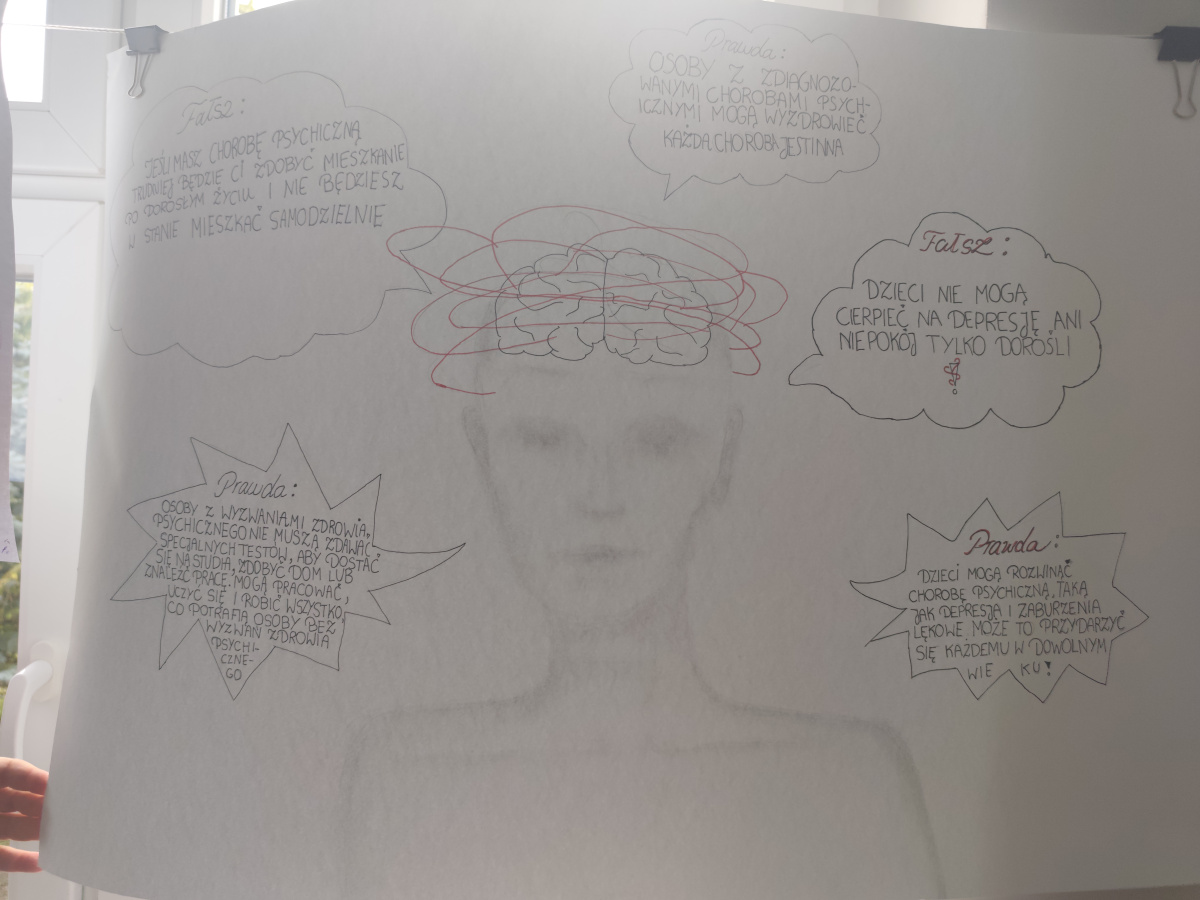 Fałsz:
JEŚLI MASZ CHOROBĘ PSYCHICZNĄ
TRUDNIEJ BĘDZIE CI ZDOBYĆ MIESZKANIE
PO DOROSŁYM ŻYCIU I NIE BĘDZIESZ
W STANIE MIESZKAĆ SAMODZIELNIE
Prawda:
OSOBY Z ZDIAGNOZO-
WANYMI CHOROBAMI PSYCH-
ICZNYMI MOGĄ WYZDROWIEĆ
KAŻDA CHOROBA JEST INNA
Fałsz:
DZIECI NIE MOGĄ
CIERPIEĆ NA DEPRESJĘ ANI
NIEPOKÓJ TYLKO DOROŚLI
!
Prawda:
OSOBY Z WYZWANIAMI ZDROWIA,
PSYCHICZNEGO NIE MUSZĄ ZDAWAĆ
SPECJALNYCH TESTÓW, ABY DOSTAĆ
SIĘ NA STUDIA, ZDOBYĆ DOM LUB
ZNALEŹĆ PRACĘ. MOGĄ PRACOWAĆ,
UCZYĆ SIĘ I ROBIĆ WSZYSTKO,
CO POTRAFIĄ OSOBY BEZ
WYZWAŃ ZDROWIA
PSYCHI-
CZNE-
GO
Prawda:
DZIECI MOGĄ ROZWINĄĆ
CHOROBĘ PSYCHICZNĄ, TAKĄ
JAK DEPRESJA I ZABURZENIA
LĘKOWE. MOŻE TO PRZYDARZYĆ
SIĘ KAŻDEMU W DOWOLNYM
WIE KU!